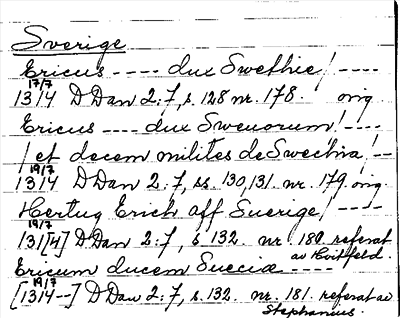 Sverige
Ericus ---- dux Swethie/ ----
17/7
1314 DDan 2:7, s. 128 nr. 178. orig
Ericus ---- dux Sweuorum/ ----
/et decem milites de Swechia/--
19/7
1314 DDan 2:7, ss. 130,131. nr. 179. orig
Hertug Erich aff Suerige/ ----
19/7
131[4] DDan 2:7, s 132. nr. 180. referat
av Hvitfeld.
Ericum ducem Sueciæ ----
19/7
[1314--] DDan 2:7, s. 132. nr. 181. referat av
Stephanius.